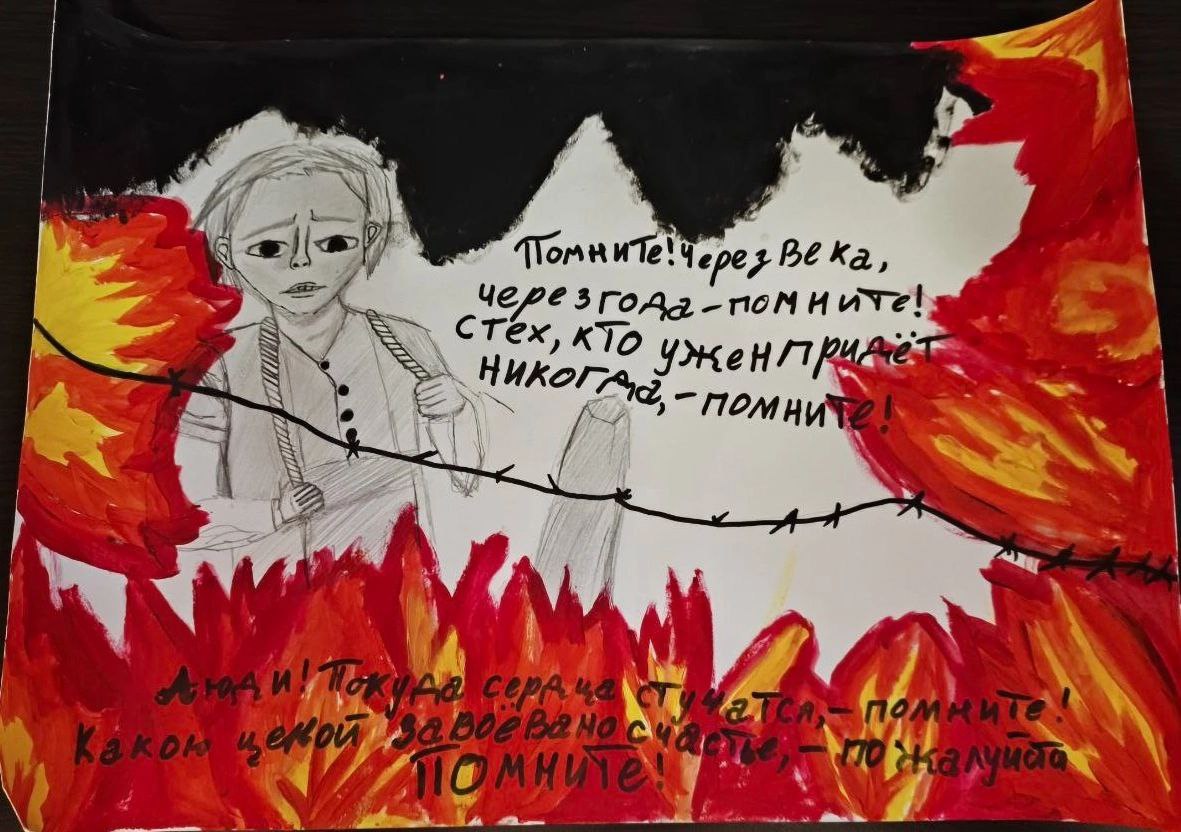 Помните! Через века,
через года – помните!
С тех, кто уже н придёт
никогда, – помните!
Люди! Покуда сердца стучатся, – помните!
Какою ценой завоёвано счастье, – пожалуйста
ПОМНИТЕ!